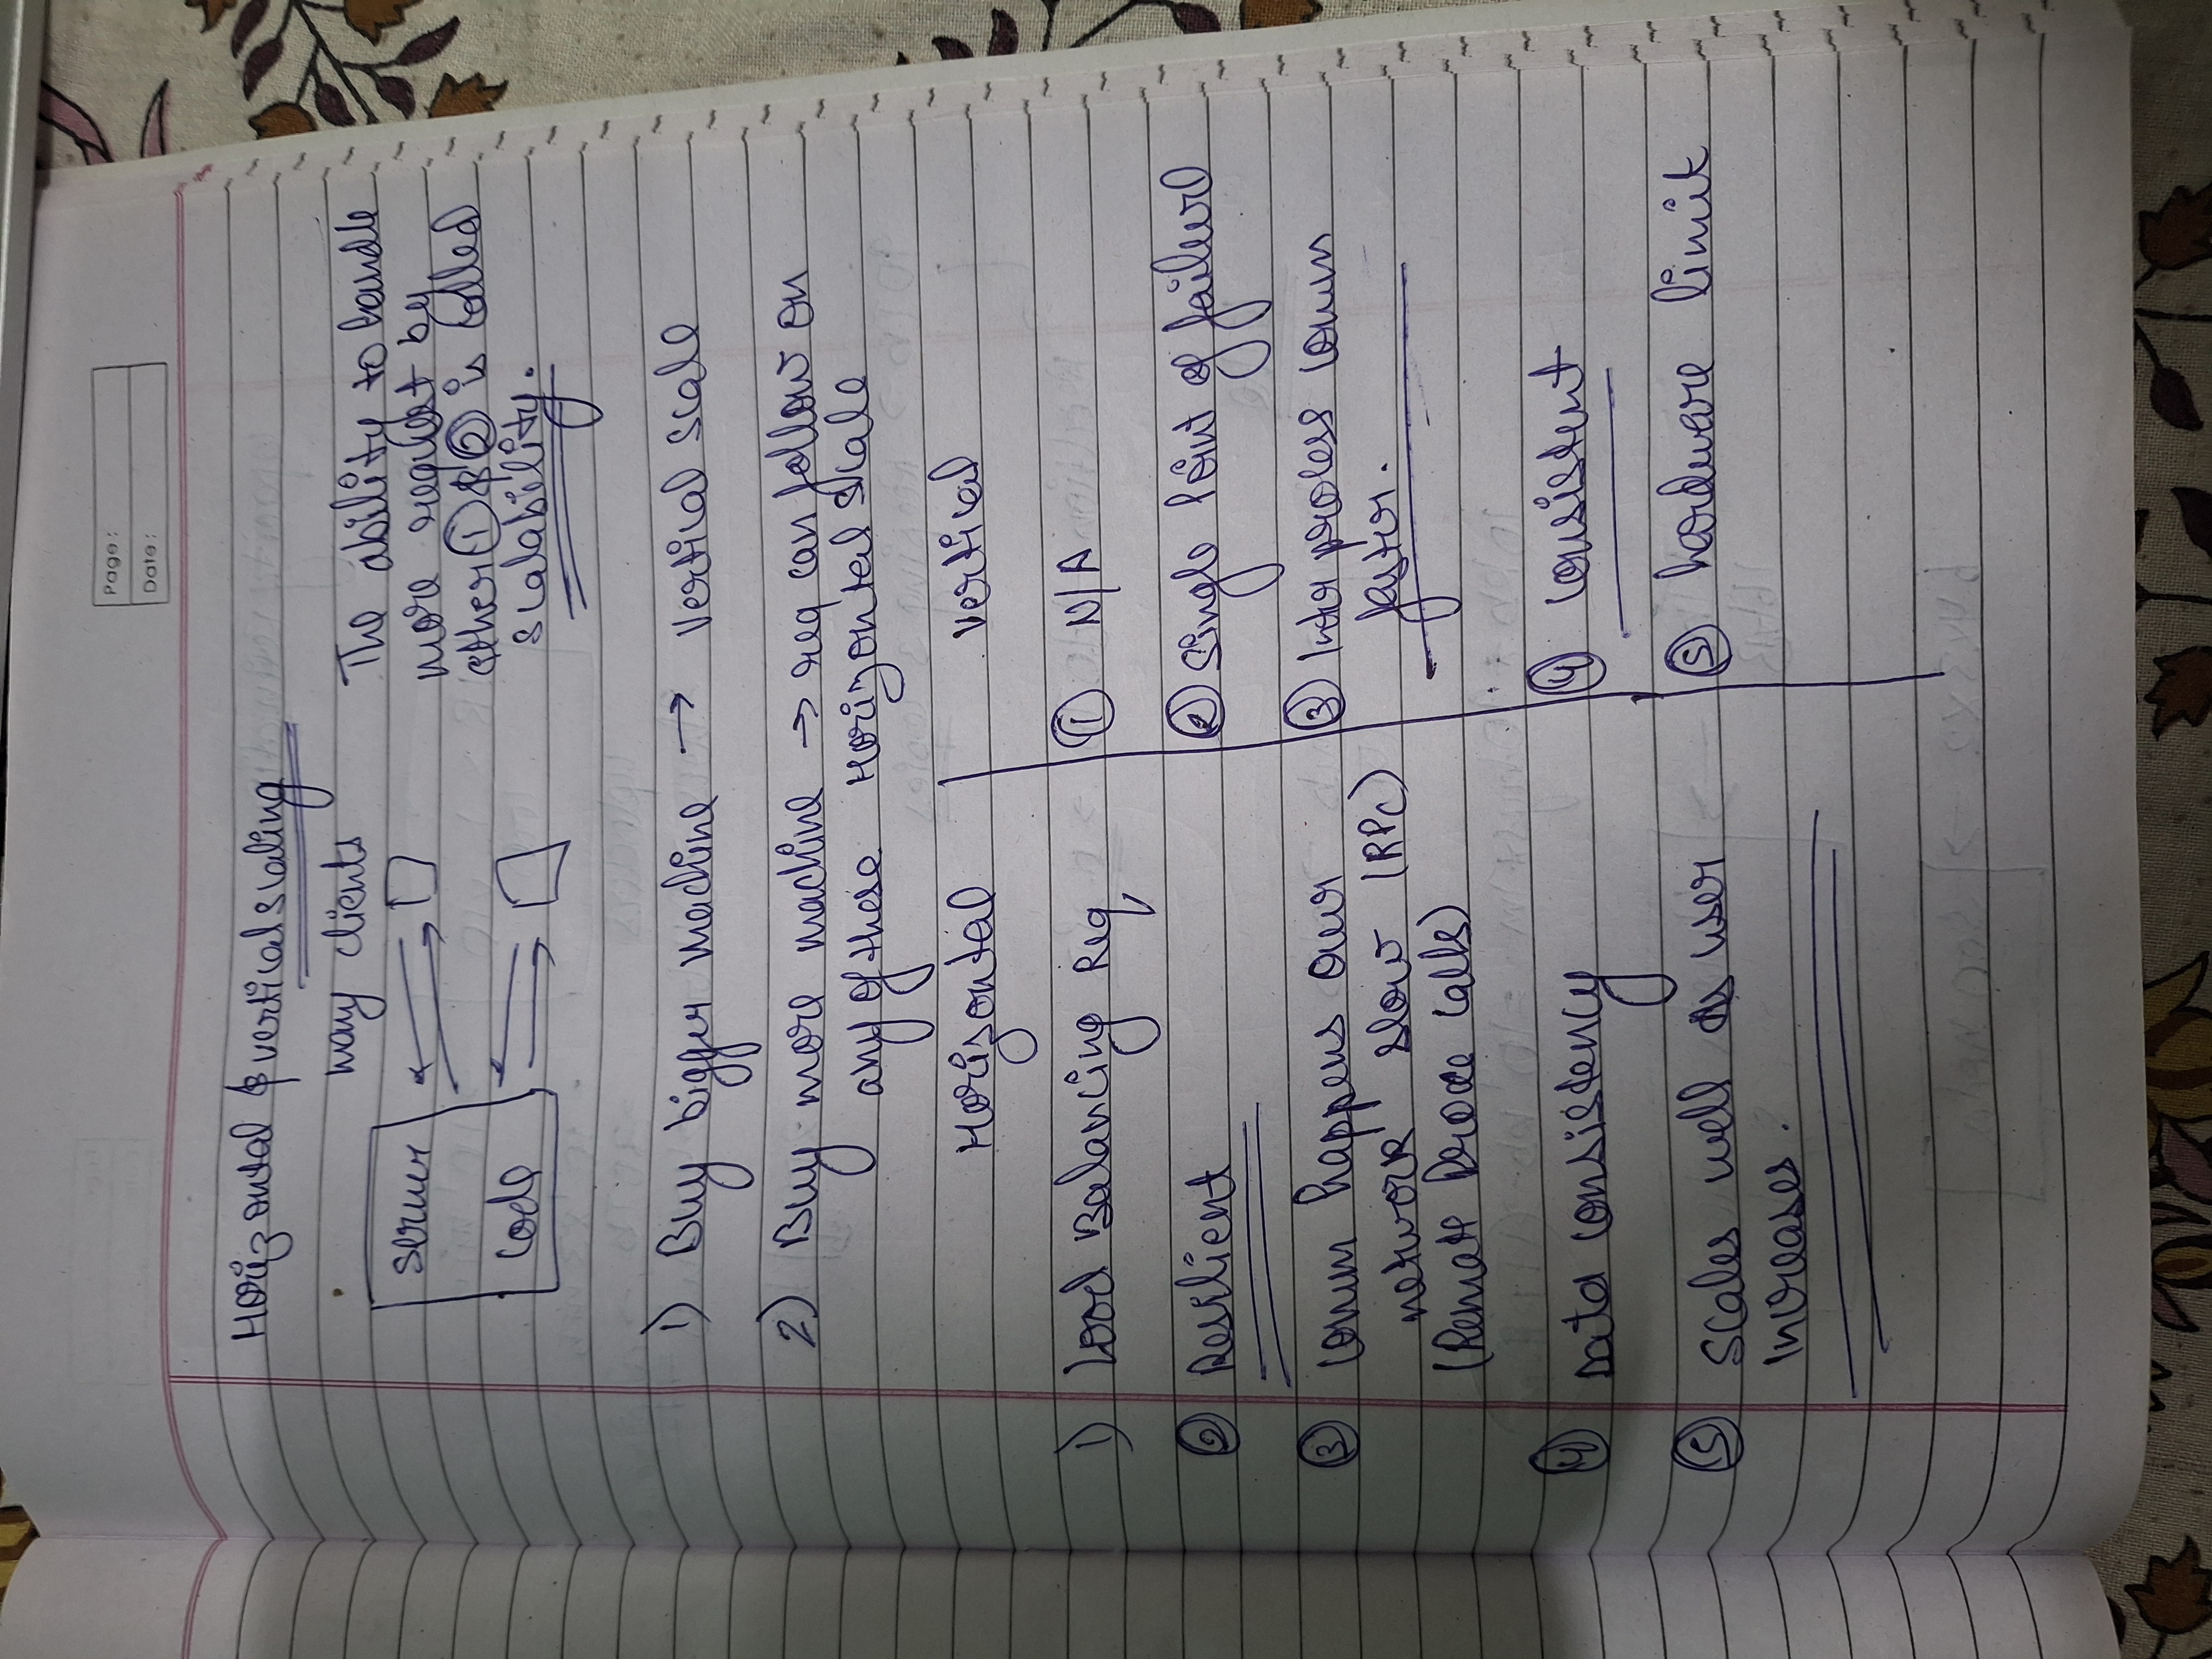 Page :
Date :
Horizontal & vertical scaling
many clients
server
code
The ability to handle
more request by
other ① & ② is called
scalability.
1) Buy bigger machine → vertical scale
2) Buy more machine → req can follow on
any of these Horizontal scale
Horizontal
vertical
1) Load Balancing Req
① N/A
② Resilient
② Single Point of failure
③ comm happens over
network slow (RPC)
(Remote Proce Calls)
③ Inter process comm
faster.
④ Data consistency
④ consistent
⑤ Scales well as user
increases.
⑤ hardware limit